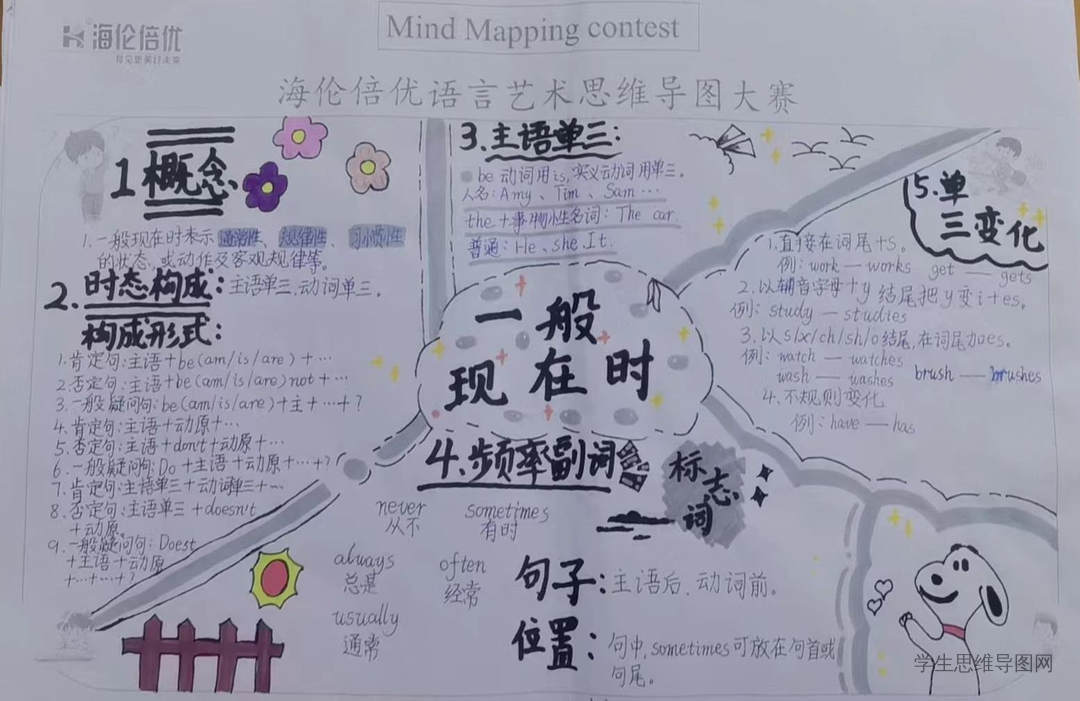 海伦倍优
Mind Mapping contest
海伦倍优语言艺术思维导图大赛
1 概念
1.一般现在时表示通常性、规律性、习惯性
的状态,或动作及客观规律等。
2.时态构成:主语单三,动词单三。
构成形式:
1.肯定句:主语+be(am/is/are)+…
2.否定句:主语+be(am/is/are)not+…
3.一般疑问句:be(am/is/are)+主+…+?
4.肯定句:主语+动原+…
5.否定句:主语+don't+动原+…
6.一般疑问句:Do+主语+动原+…+?
7.肯定句:主语单三+动词单三+…
8.否定句:主语单三+doesn't
+动原
9.一般疑问句:Doest
+主语+动原
+…+…+?
3.主语单三:
be 动词用is,实义动词用单三。
人名:Amy、Tim、Sam…
the+事物性名词:The car.
普通:He、she.It.
一般
现在时
4.频率副词
标志词
never
从不
sometimes
有时
always
总是
often
经常
usually
通常
句子:主语后,动词前。
位置:句中,sometimes可放在句首或
句尾。
5.单
三变化
1.直接在词尾+s。
例:work—works get—gets
2.以辅音字母+y结尾把y变i+es。
例:study—studies
3.以s/x/ch/sh/o结尾,在词尾加es。
例:watch—watches
wash—washes brush—brushes
4.不规则变化
例:have—has
学生思维导图网